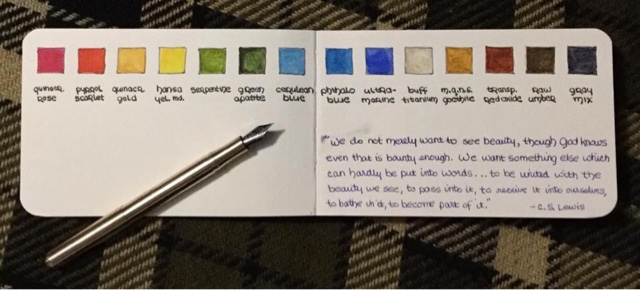 quinacr. rose
pyrrol scarlet
quinacr. gold
hansa yel. md.
serpentine
green apatite
cerulean blue
phthalo blue
ultra-marine
buff titanium
m.g.n.z. goethite
transp. red oxide
raw umber
gray mix
"We do not merely want to see beauty, though God knows
even that is bounty enough. We want something else which
can hardly be put into words... to be united with the
beauty we see, to pass into it, to receive it into ourselves,
to bathe in it, to become part of it."
- C.S. Lewis